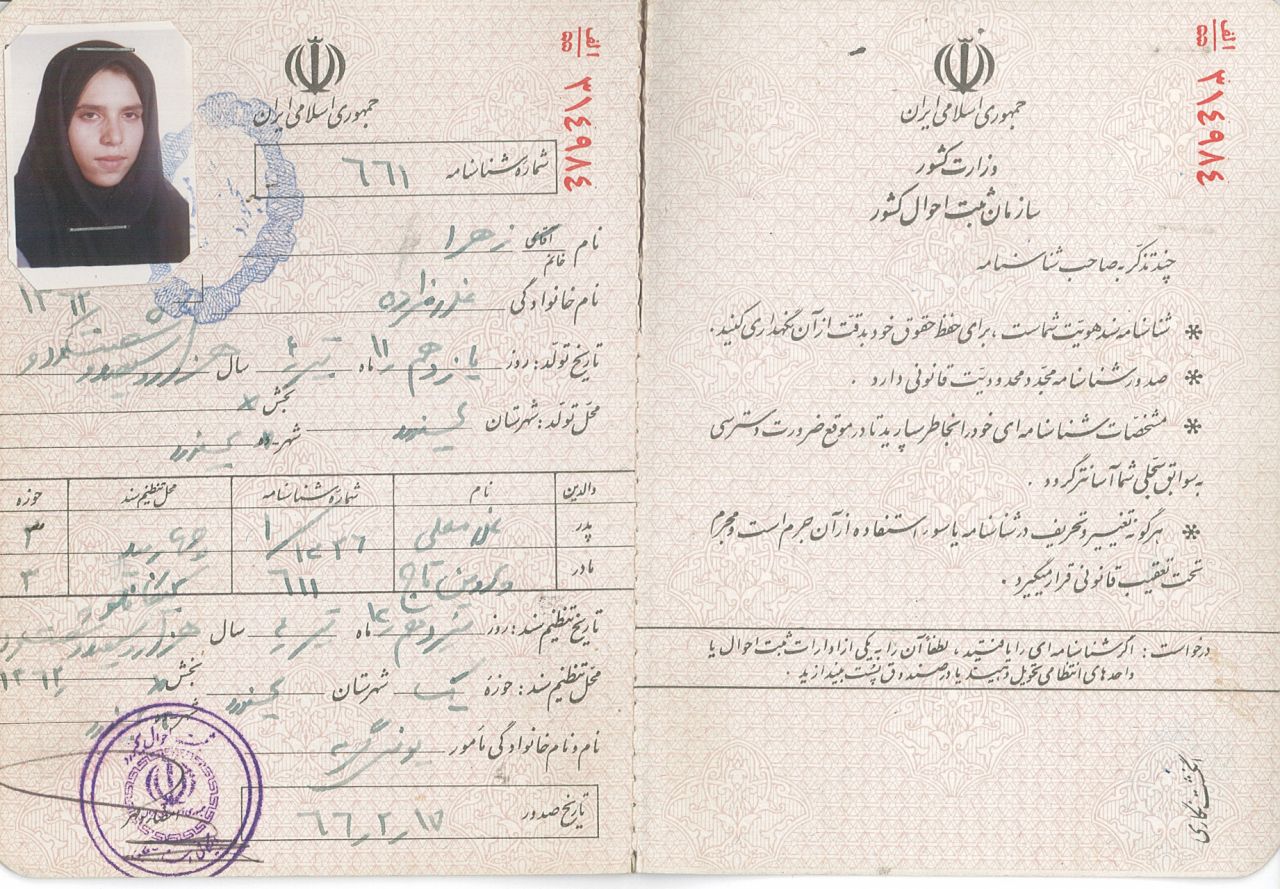 الف
۳۱۴۹۸۴
جمهوری اسلامی ایران
وزارت کشور
سازمان ثبت احوال کشور
چند تذکر به صاحب شناسنامه
* شناسنامه سند هویّت شماست ، برای حفظ حقوق خود بدقّت از آن نگهداری کنید.
* صدور شناسنامه مجدّد محدودیّت قانونی دارد .
* مشخصّات شناسنامه ای خود را بخاطر بسپارید تا در موقع ضرورت دسترسی
به سوابق سجلّی شما آسانتر گردد .
* هرگونه تغییر و تحریف در شناسنامه یا سوء استفاده از آن جرم است و مجرم
تحت تعقیب قانونی قرار میگیرد .
درخواست : اگر شناسنامه ای را یافتید ، لطفاً آن را به یکی از ادارات ثبت احوال یا
واحدهای انتظامی تحویل دهید یا در صندوق پست بیندازید .
انگشت نگاری
الف
۳۱۴۹۸۴
جمهوری اسلامی ایران
شماره شناسنامه ۶۶۱
نام آقای خانم زهرا
نام خانوادگی
۱۳۶۲
تاریخ تولّد : روز یازدهم ۱۱ ماه تیر ۴ سال هزار و سیصد و شصت و دو
محلّ تولّد : شهرستان بجنورد بخش ×
شهر بجنورد
والدین نام شماره شناسنامه محلّ تنظیم سند حوزه
پدر ۳
مادر ۶۱۱ ۳
تاریخ تنظیم سند : روز ماه تیر سال هزار و سیصد و شصت و دو
محلّ تنظیم سند : حوزه یک شهرستان بجنورد بخش × ۱۳۶۲
نام و نام خانوادگی مأمور
تاریخ صدور ۶۶٫۲٫۱۷